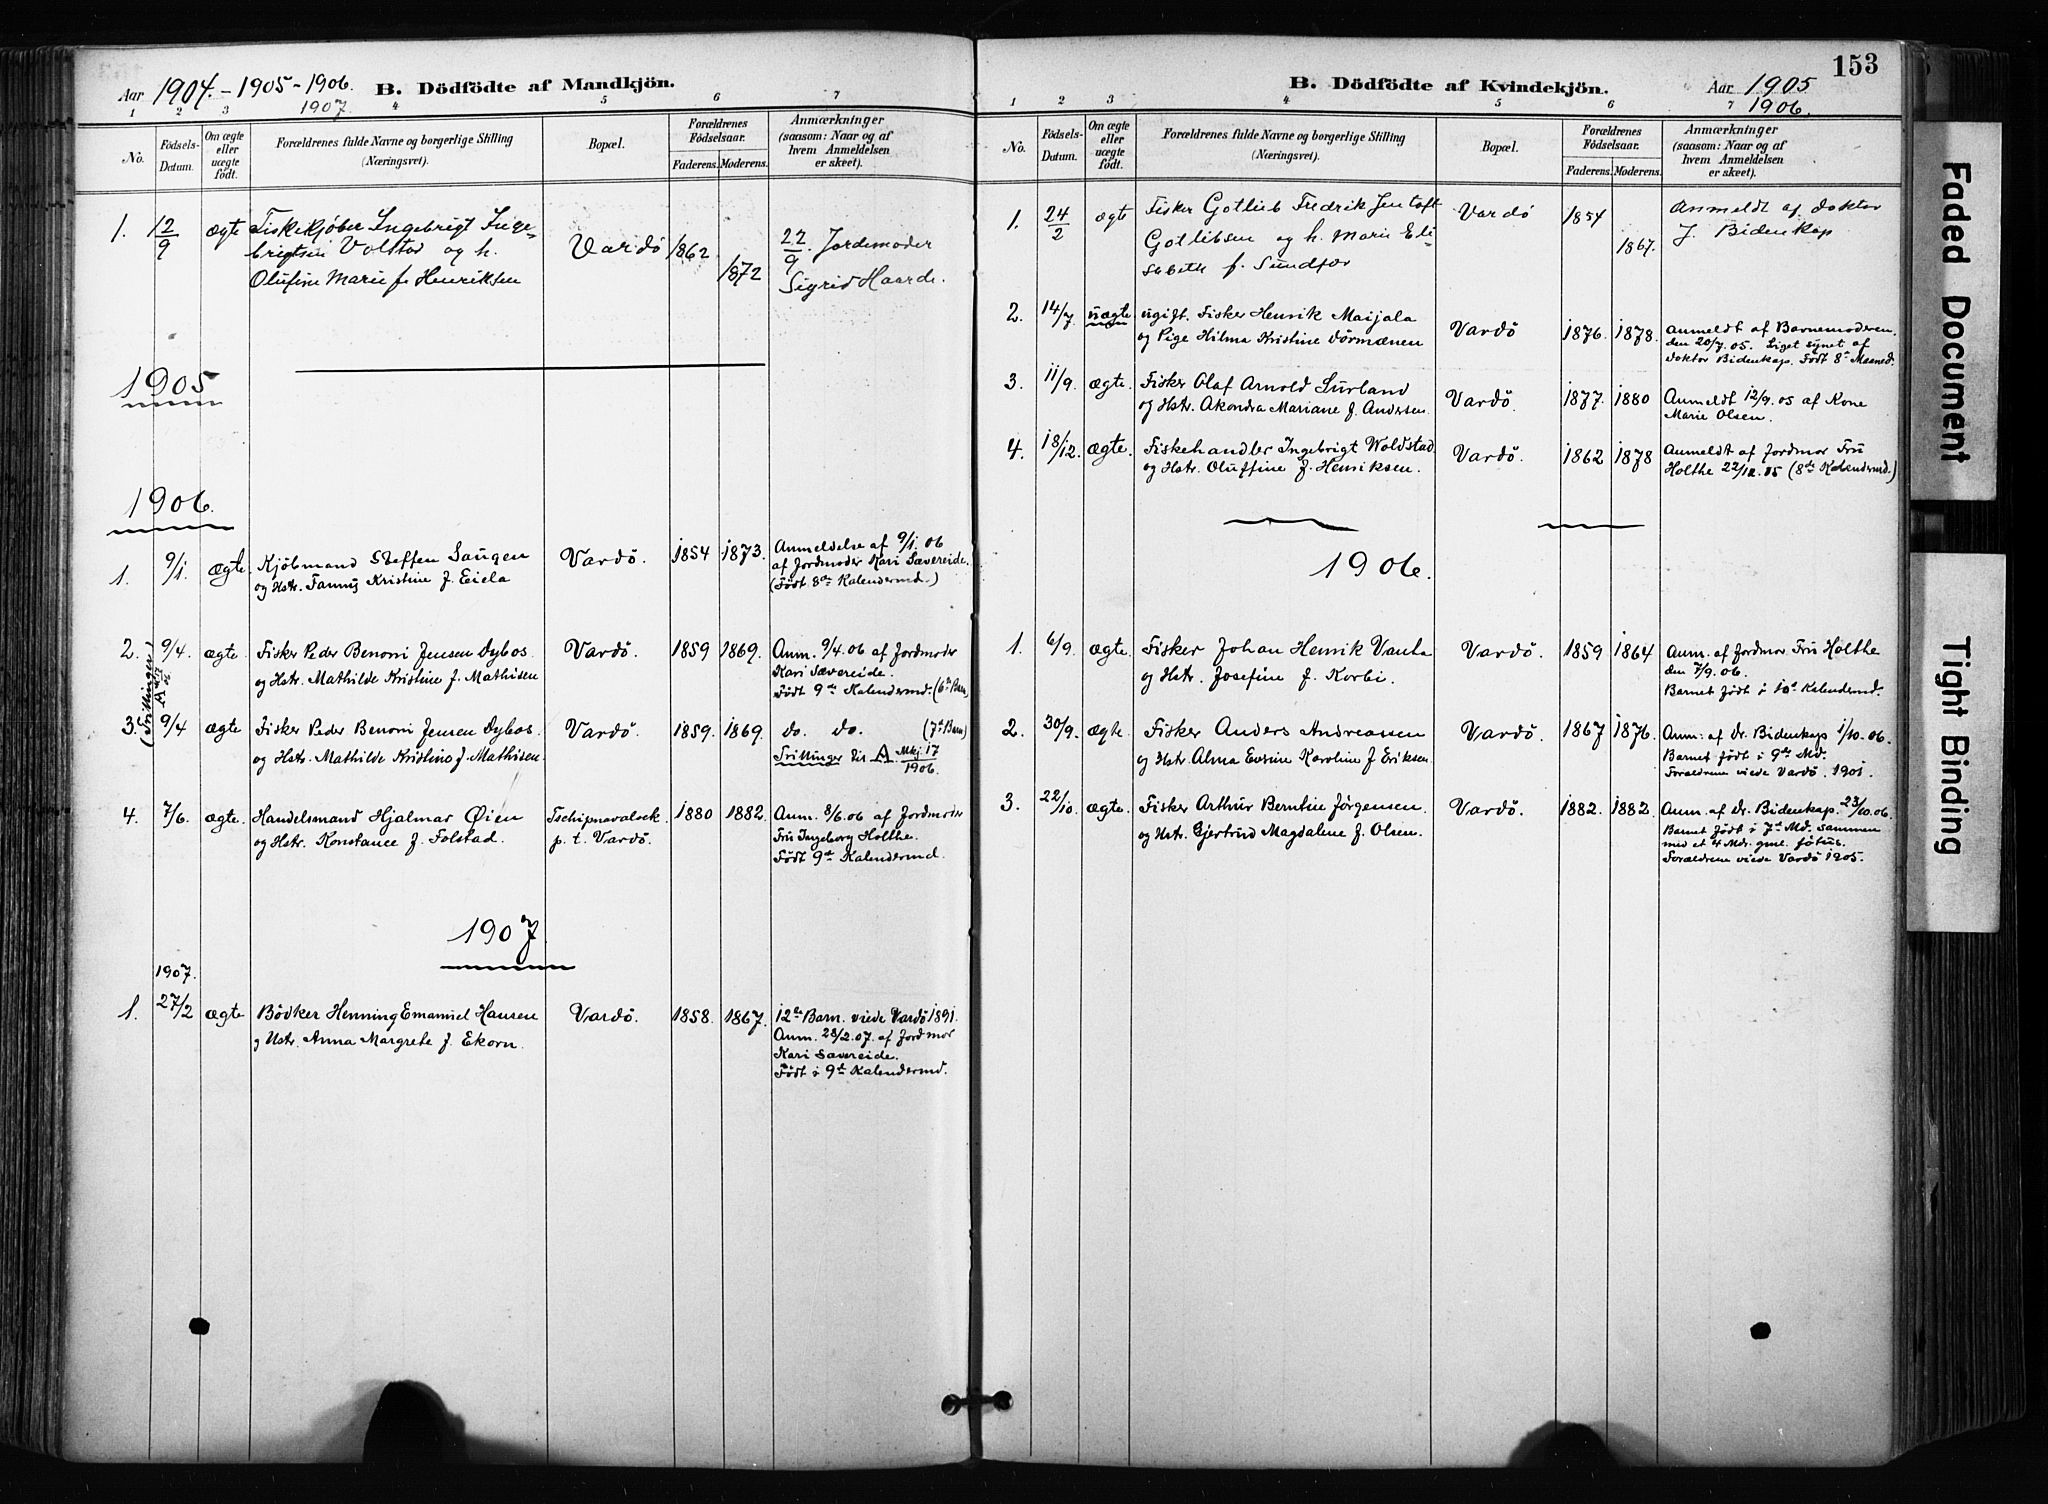 Aar 1904. - 1905 - 1906. B. Dödfödte af Mandkjön.
1907.
1 2 3 4 5 6 7
No.
Födsels-Datum.
Om ægte eller uægte födt.
Forældrenes fulde Navne og borgerlige Stilling (Næringsvei).
Bopæl.
Forældrenes Födselsaar.
Faderens. Moderens.
Anmærkninger (saasom: Naar og af hvem Anmeldelsen er skeet).
1. 12/9 ægte Fiskekjøber Ingebrigt Inge-
brigtsen Volstad og h.
Olufine Marie f. Henriksen
Vardö 1862 1872
22/9. Jordemoder
Sigrid Haarde.
1905
1906.
1. 9/1. ægte Kjöbmand Steffen Saugen
og Hstr. Fanny Kristine f. Eiela
Vardö. 1854 1873.
Anmeldelse af 9/1. 06
af Jordmoder Kari Sævereide.
(Födt 8de Kalendermd.)
2. 9/4. ægte. Fisker Peder Benoni Jensen Dybos
og Hstr. Mathilde Kristine f. Mathisen
Vardö. 1859 1869.
Anm. 9/4. 06 af Jordmoder
Kari Sævereide.
Födt 9de Kalendermd. (6te Barn
(Trillinger)
3. 9/4 ægte Fisker Peder Benoni Jensen Dybos.
og Hstr. Mathilde Kristine f. Mathisen.
Vardö. 1859. 1869.
do. do. (7de Barn)
Trillinger til A. Mkj. 17
1906.
4. 7/6. ægte. Handelsmand Hjalmar Øien
og Hstr. Konstance f. Folstad.
Tschipnavalock
p. t. Vardö.
1880 1882.
Anm. 8/6. 06 af Jordmoder
Fru Ingeborg Holthe.
Födt 9de Kalendermd.
1907
1907.
1. 27/2 ægte Bödker Henning Emanuel Hansen
og Hstr. Anna Margrete f. Ekorn.
Vardö. 1858. 1867.
12te Barn. viede Vardö 1891.
Anm. 28/2. 07. af Jordmor
Kari Sævereide.
Födt i 9de Kalendermd.
153
B. Dödfödte af Kvindekjön. Aar 1905
1906.
1 2 3 4 5 6 7
No.
Födsels-Datum.
Om ægte eller uægte födt.
Forældrenes fulde Navne og borgerlige Stilling (Næringsvei).
Bopæl.
Forældrenes Födselsaar.
Faderens. Moderens.
Anmærkninger (saasom: Naar og af hvem Anmeldelsen er skeet).
1. 24/2 ægte Fisker Gotlieb Fredrik Jentoft
Gotlibsen og h. Marie Eli-
sabeth f. Sundfær
Vardö 1854 1867.
Anmeldt af Doktor
J. Bidenkap
2. 14/7. uægte ugift. Fisker Henrik Maijala
og Pige Hilma Kristine Törmänen
Vardö 1876 1878.
Anmeldt af Barnemoderen.
den 20/7. 05. Liget synet af
Doktor Bidenkap. Födt 8de Maaned.
3. 11/9. ægte. Fisker Olaf Arnold Surland
og Hstr. Akondra Mariane f. Andersen.
Vardö. 1877. 1880
Anmeldt 12/9. 05 af Kone
Marie Olsen.
4. 18/12. ægte. Fiskehandler Ingebrigt Woldstad
og Hstr. Oluffine f. Henriksen.
Vardö. 1862 1878
Anmeldt af Jordmor Fru
Holthe 22/12. 05 (8de Kalendermd.)
1906.
1. 6/9. ægte. Fisker Johan Henrik Vanta
og Hstr. Josefine f. Korbi.
Vardö. 1859 1864
Anm. af Jordmor Fru Holthe
den 7/9. 06.
Barnet födt i 10de Kalendermd.
2. 30/9. ægte Fisker Anders Andreassen
og Hstr. Alma Evrine Karoline f. Eriksen
Vardö. 1867 1876.
Anm. af Dr. Bidenkap 1/10. 06.
Barnet födt i 9de Md.
Forældrene viede Vardö 1901.
3. 22/10. ægte. Fisker Arthur Berntin Jörgensen
og Hstr. Gjertrud Magdalene f. Olsen.
Vardö. 1882. 1882.
Anm. af Dr. Bidenkap. 23/10. 06.
Barnet födt i 7de Md. sammen
med et 4 Mdr. gml. fötus.
Forældrene viede Vardö 1905.
Faded Document
Tight Binding